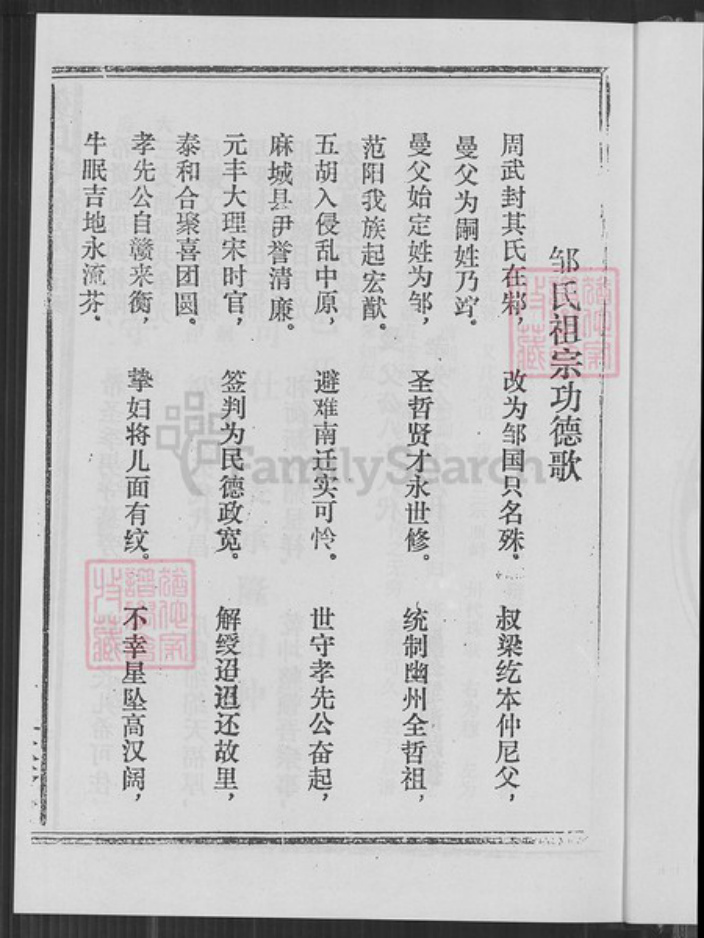 邹氏祖宗功德歌
周武封其氏在邾，　改为邹国只名殊．　叔梁纥本仲尼父，
曼父为嗣姓乃
曼父始定姓为邹，　圣哲贤才永世修．　统制幽州全哲祖，
范阳我族起宏猷．
五胡入侵乱中原，　避难南迁实可怜．　世守孝先公奋起，
麻城县尹誉清廉．
元丰大理宋时官，　签判为民德政宽．　解绶迢迢还故里，
泰和合聚喜团圆．
孝先公自赣来衡，　挚妇将儿面有纹．　不幸星坠高汉阔，
牛眠吉地永流芬．
FamilySearch